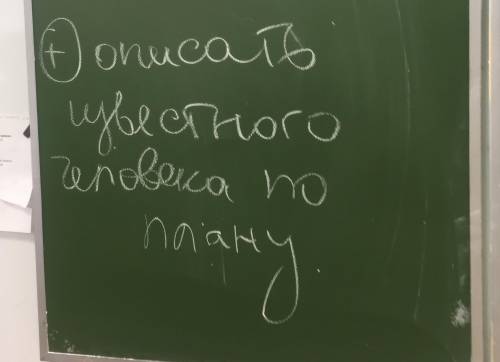 + описать
известного
человека по
плану.